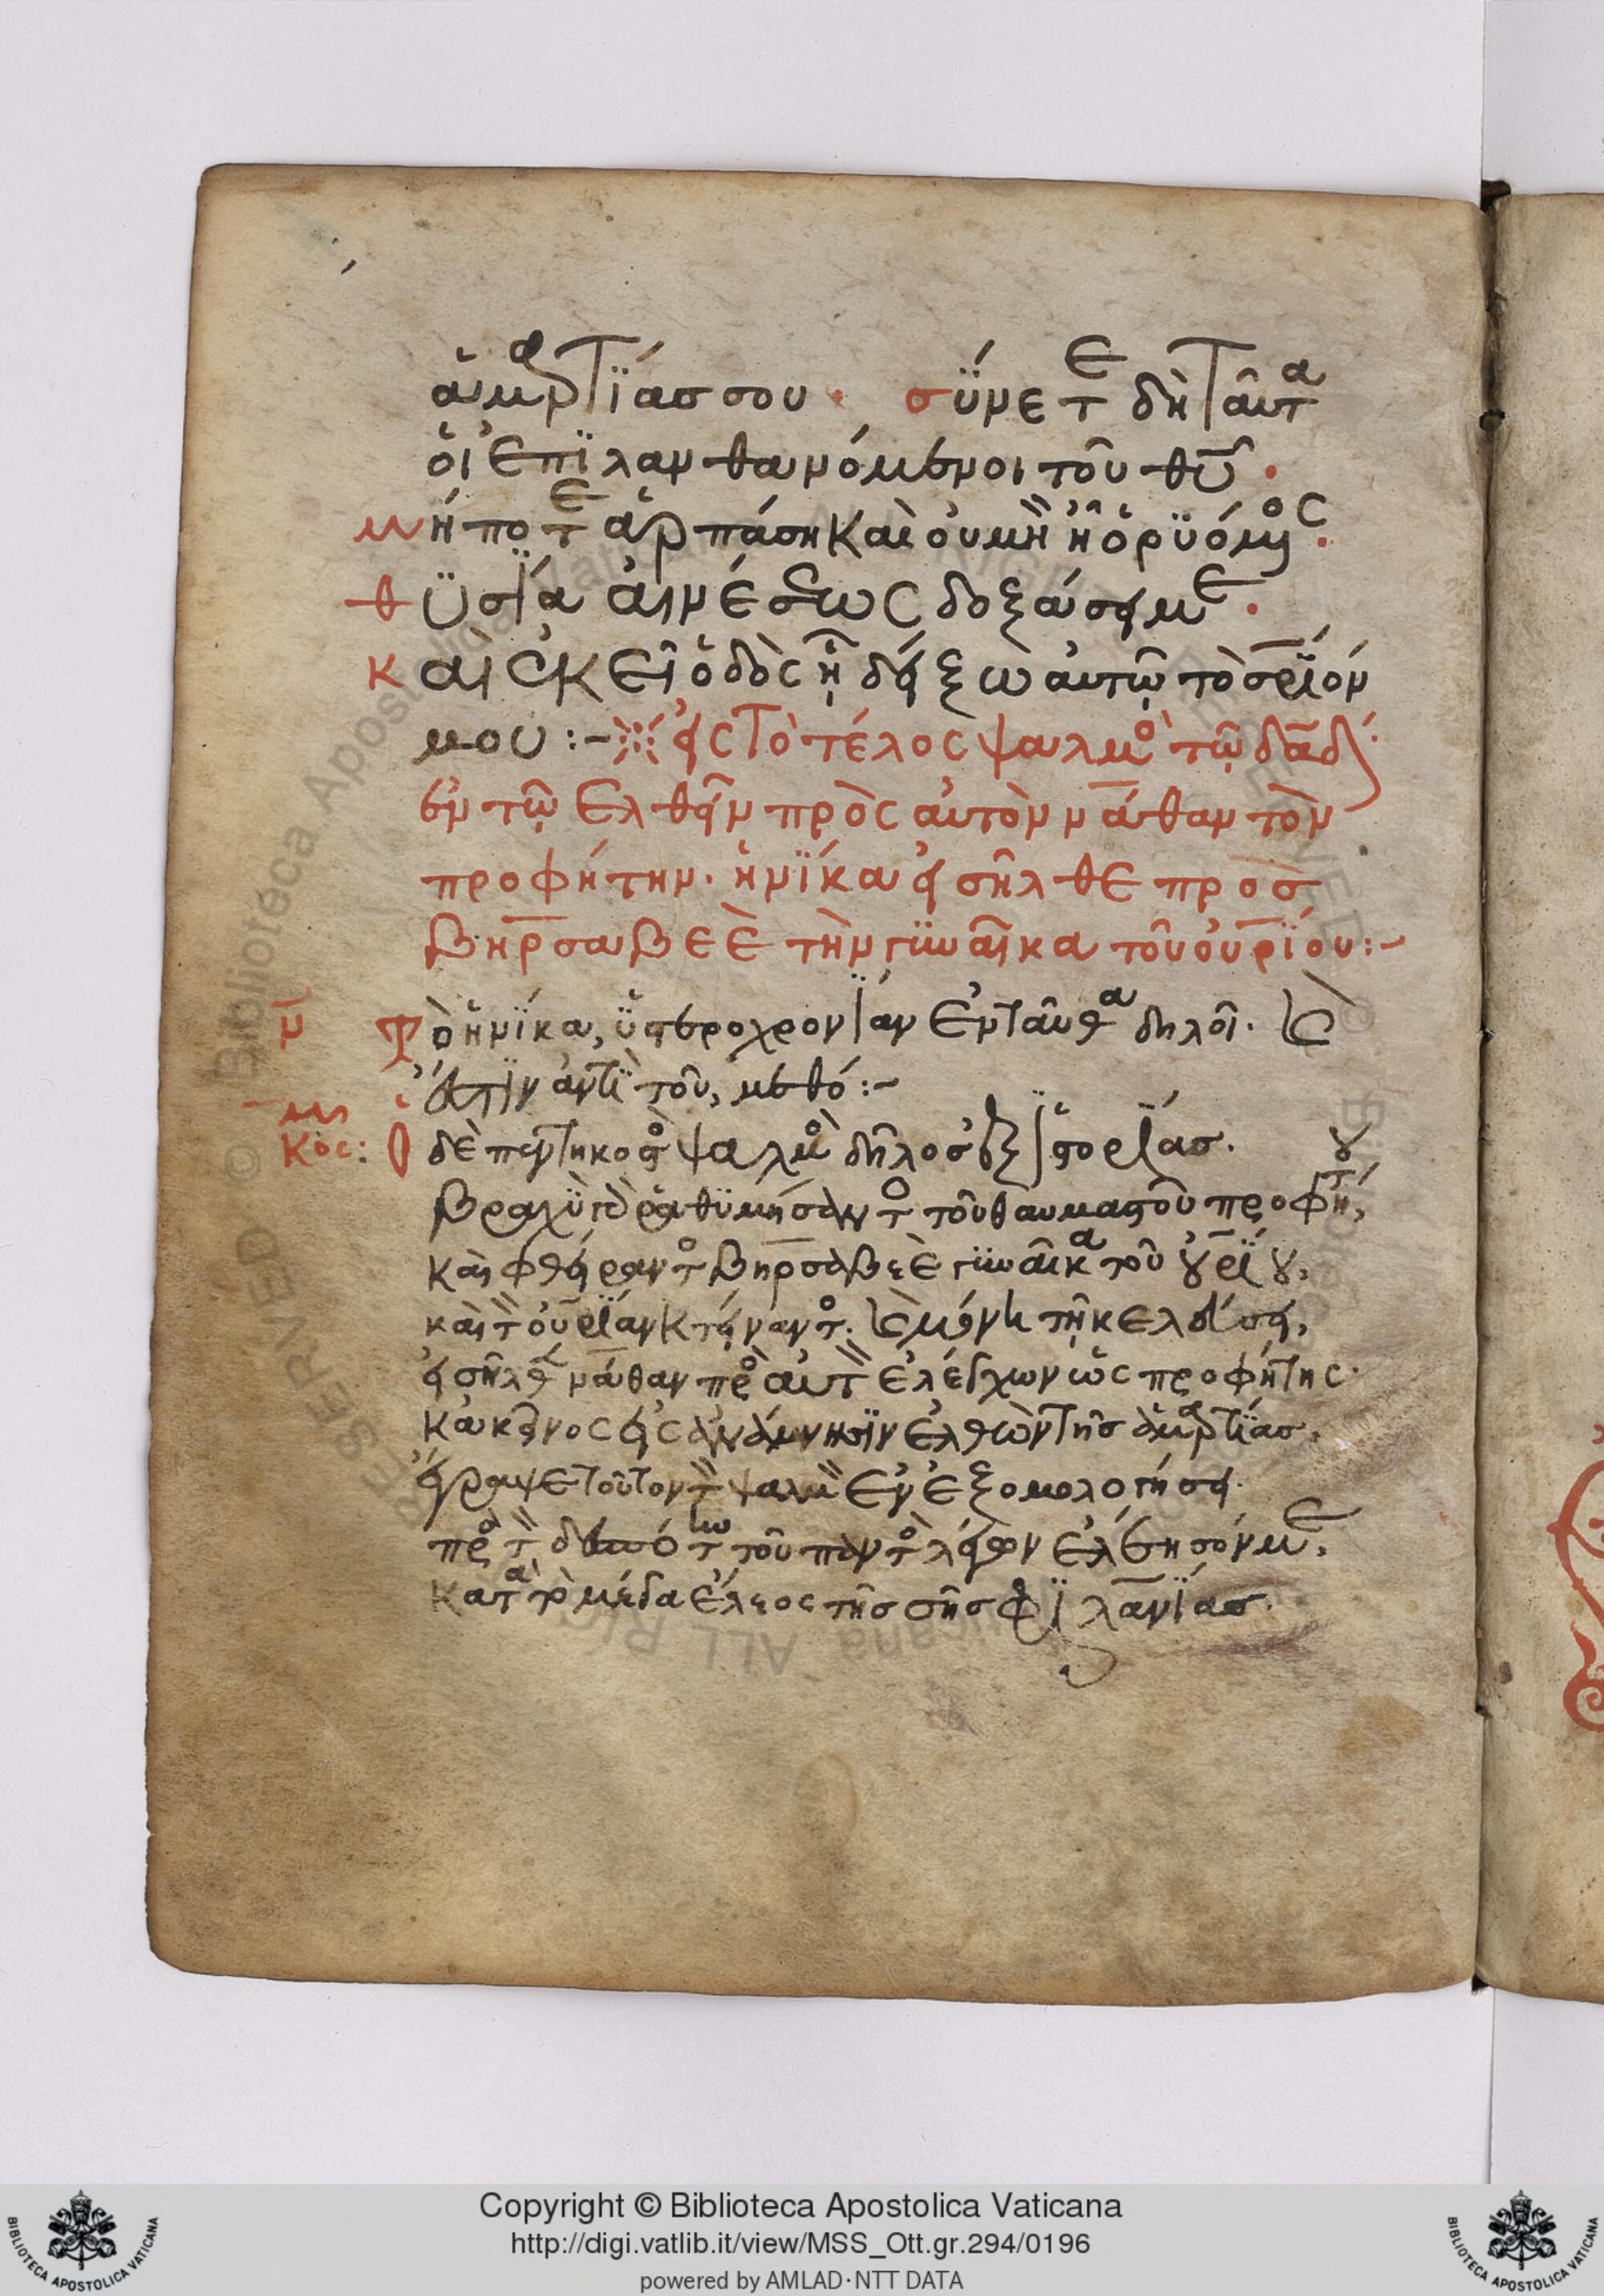 ἁμαρτίας σου· σύνετε δὴ ταῦτα
οἱ ἐπιλανθανόμενοι τοῦ θῦ·
μήποτε ἁρπάσῃ καὶ οὐ μὴ ᾖ ὁ ῥυόμενος·
θυσία αἰνέσεως δοξάσει με·
καὶ ἐκεῖ ὁδὸς ᾗ δείξω αὐτῷ τὸ σριον
μου :- εἰς τὸ τέλος ψαλμὸς τῷ δαδ
ἐν τῷ ἐλθεῖν πρὸς αὐτὸν νάθαν τὸν
προφήτην. ἡνίκα εἰσῆλθε πρὸς
βηρσαβεὲ τὴν γυναῖκα τοῦ οὐρίου :-
Τὸ ἡνίκα, ὑστεροχρονίαν ἐνταῦθα δηλοῖ. καὶ
ἔστιν ἀντὶ τοῦ, μεθό :-
Ὁ δὲ πεντηκοστὸς ψαλμὸς δῆλος ἐξ ἱστορίας. οὐ
βραχὺ γὰρ ῥαθυμήσαντος τοῦ θαυμαστοῦ προφήτου,
καὶ φθείραντος βηρσαβεὲ γυναῖκα τοῦ οὐρίου,
καὶ τὸν οὐρίαν κτείναντος. καὶ
εἰσῆλθε νάθαν πρὸς αὐτὸν ἐλέγχων ὡς προφήτης.
κἀκεῖνος εἰς ἀνάμνησιν ἐλθὼν τῆς ἁμαρτίας,
ἔγραψε τοῦτον τὸν ψαλμὸν ἐν ἐξομολογήσει
πρὸς τὸν δεσπότην τοῦ παντὸς λέγων ἐλέησόν με,
κατὰ τὸ μέγα ἔλεος τῆς σῆς φιλανίας.
Copyright © Biblioteca Apostolica Vaticana
http://digi.vatlib.it/view/MSS_Ott.gr.294/0196
powered by AMLAD·NTT DATA
BIBLIOTECA APOSTOLICA VATICANA
BIBLIOTECA APOSTOLICA VATICANA